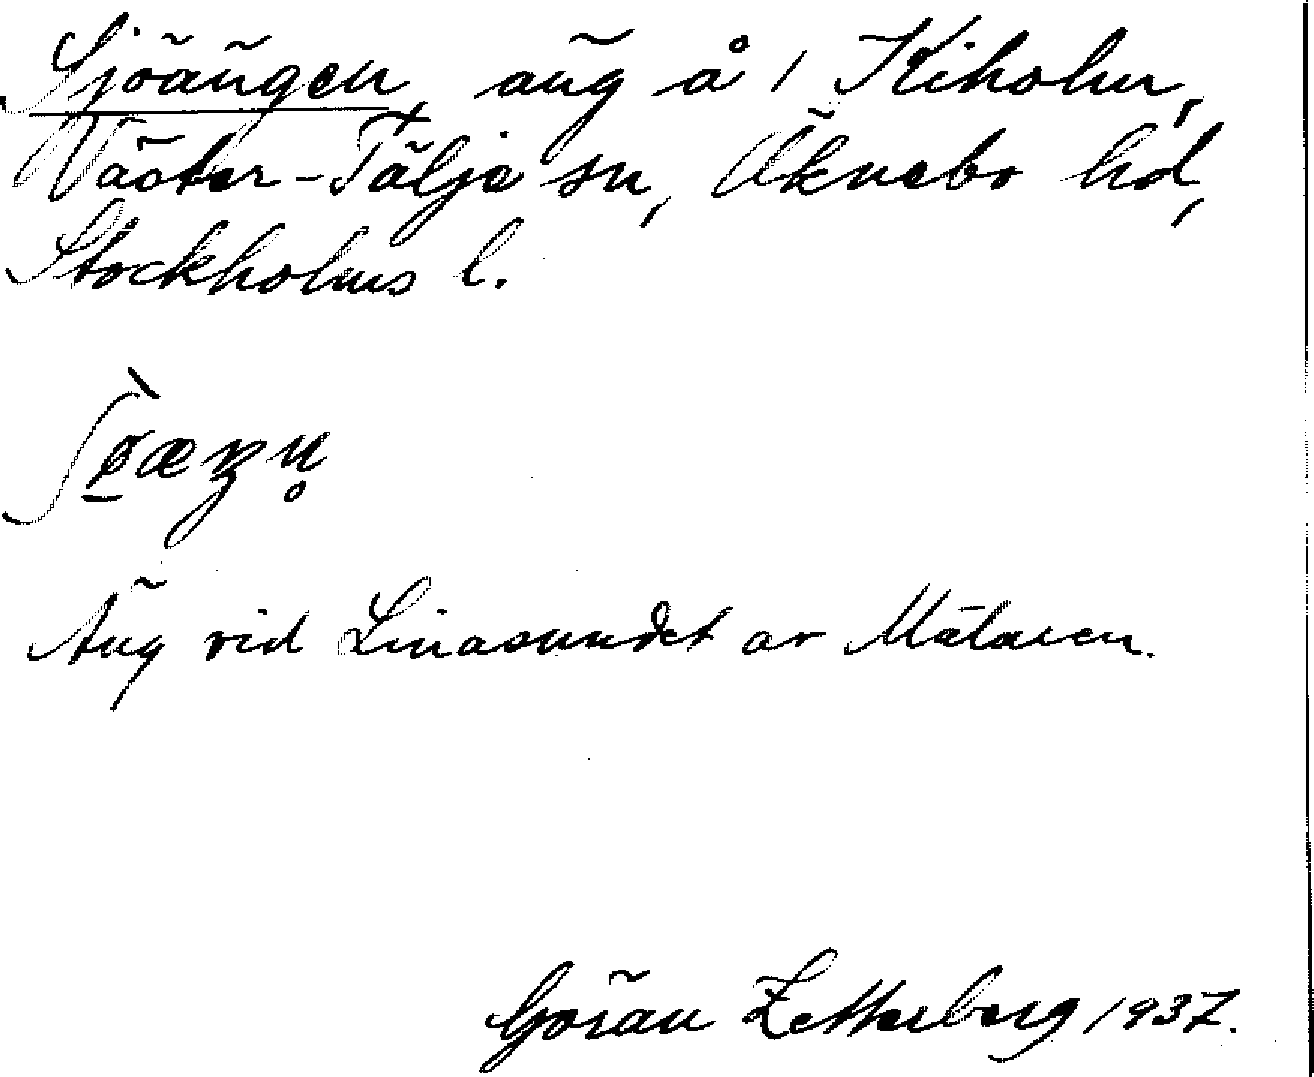 Sjöängen, äng å 1 Kiholm,
Väster-Tälje sn, Öknebo hd,
Stockholms l.
Äng vid Linasundet av Mälaren.
Göran Zetterberg 1937.